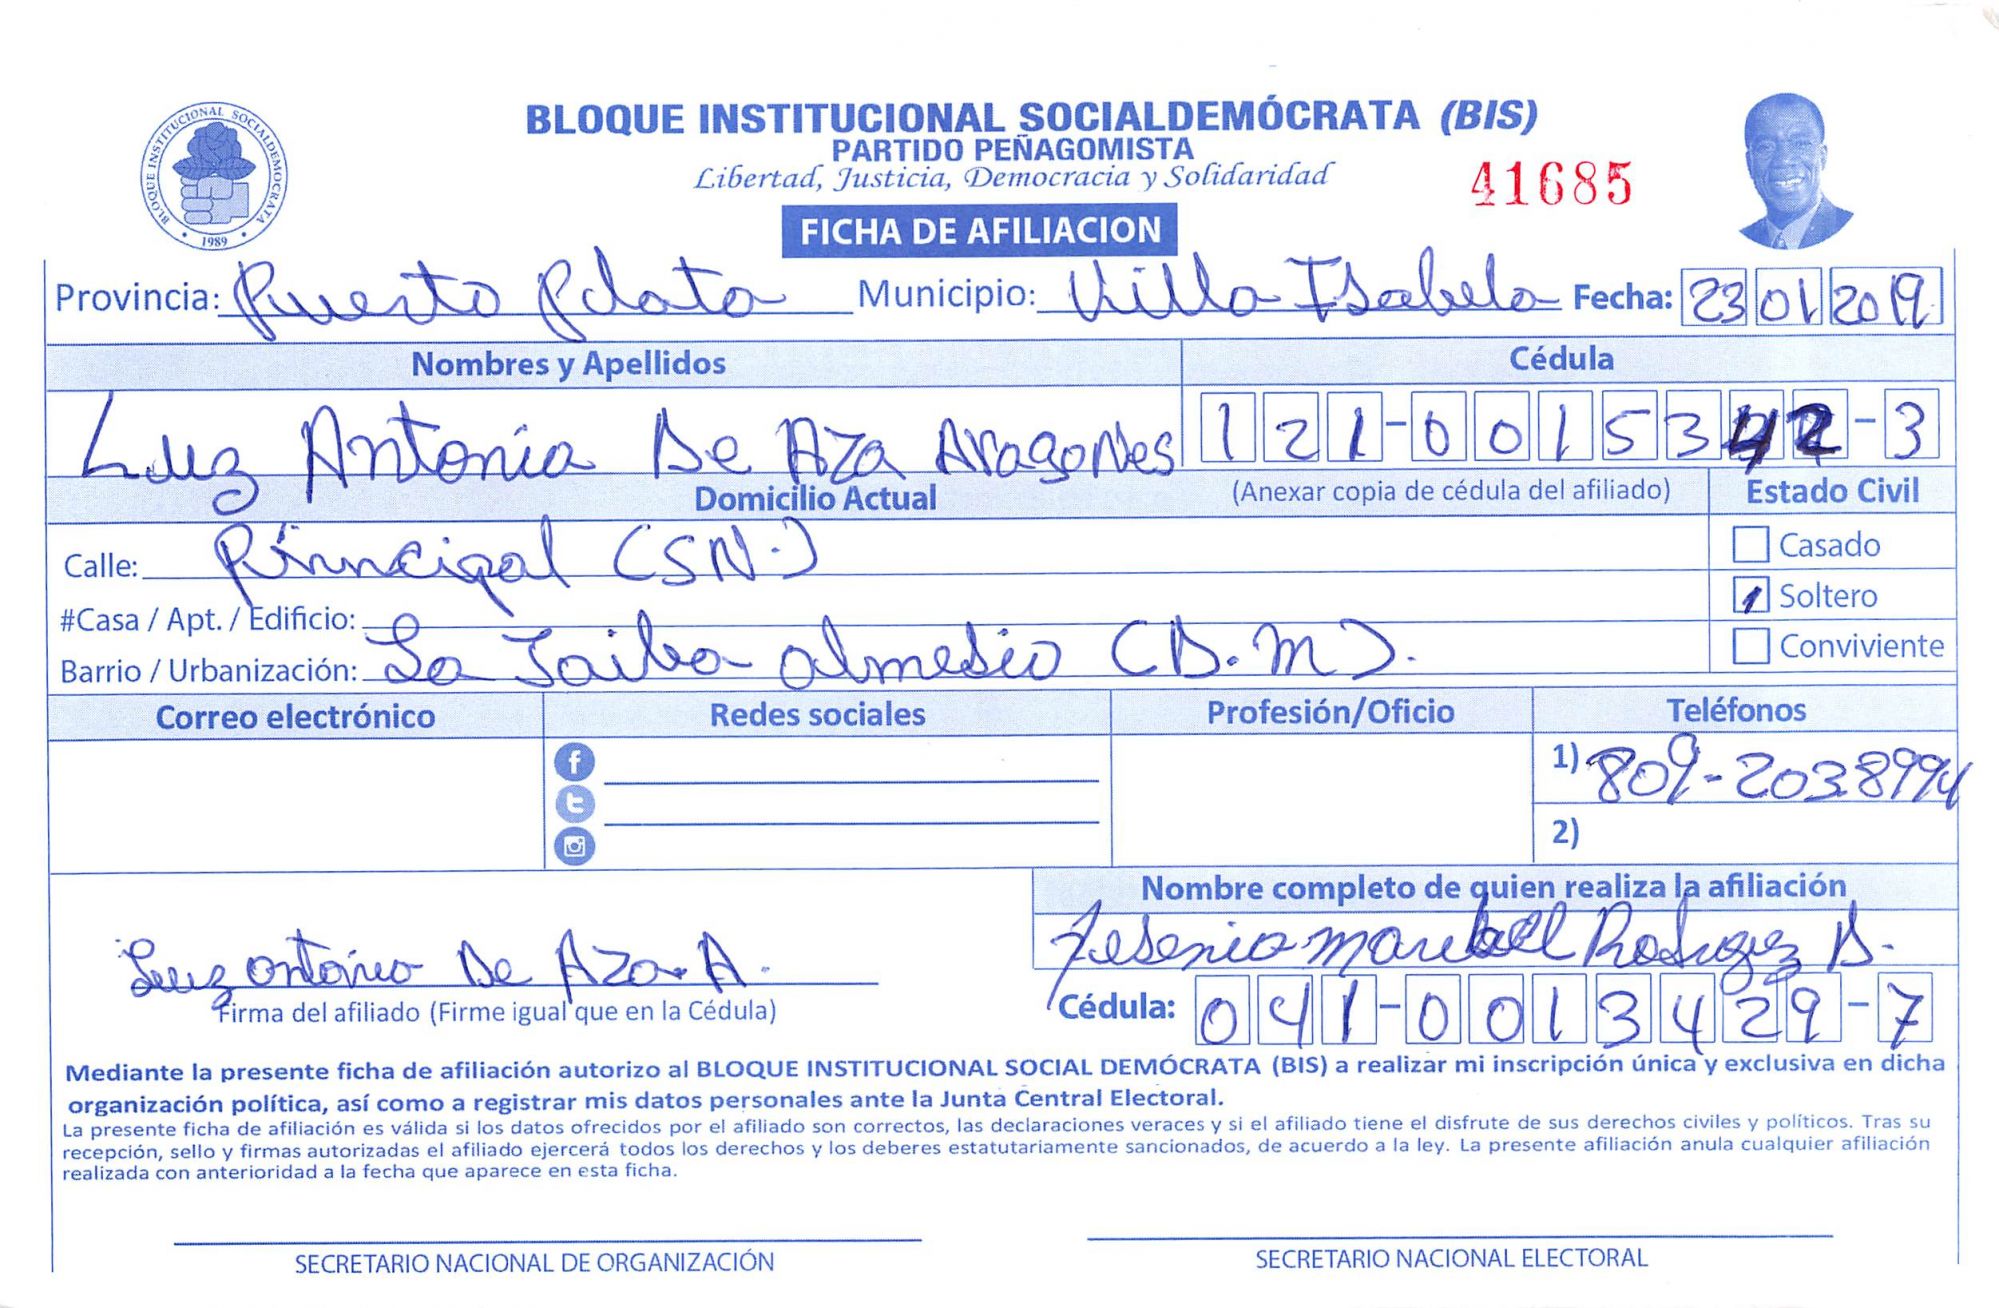 BLOQUE INSTITUCIONAL SOCIALDEMÓCRATA (BIS)
PARTIDO PEÑAGOMISTA
Libertad, Justicia, Democracia y Solidaridad
41685
BLOQUE INSTITUCIONAL SOCIALDEMOCRATA
1989
FICHA DE AFILIACION
Provincia: Puerto Plata Municipio: Villa Isabela Fecha: 23 01 2019
Nombres y Apellidos Cédula
Luz Antonia De Aza Aragones 121-0015342-3
Domicilio Actual (Anexar copia de cédula del afiliado) Estado Civil
Calle: Principal (SN.) Casado
#Casa / Apt. / Edificio: Soltero
Barrio / Urbanización: La Jaiba almedio (D.M). Conviviente
Correo electrónico Redes sociales Profesión/Oficio Teléfonos
1) 809-2038994
2)
Nombre completo de quien realiza la afiliación
Yesenia Maribell Rodriguez D.
Luz antonia De Aza. A.
Firma del afiliado (Firme igual que en la Cédula) Cédula: 041-0013429-7
Mediante la presente ficha de afiliación autorizo al BLOQUE INSTITUCIONAL SOCIAL DEMÓCRATA (BIS) a realizar mi inscripción única y exclusiva en dicha
organización política, así como a registrar mis datos personales ante la Junta Central Electoral.
La presente ficha de afiliación es válida si los datos ofrecidos por el afiliado son correctos, las declaraciones veraces y si el afiliado tiene el disfrute de sus derechos civiles y políticos. Tras su
recepción, sello y firmas autorizadas el afiliado ejercerá todos los derechos y los deberes estatutariamente sancionados, de acuerdo a la ley. La presente afiliación anula cualquier afiliación
realizada con anterioridad a la fecha que aparece en esta ficha.
SECRETARIO NACIONAL DE ORGANIZACIÓN SECRETARIO NACIONAL ELECTORAL